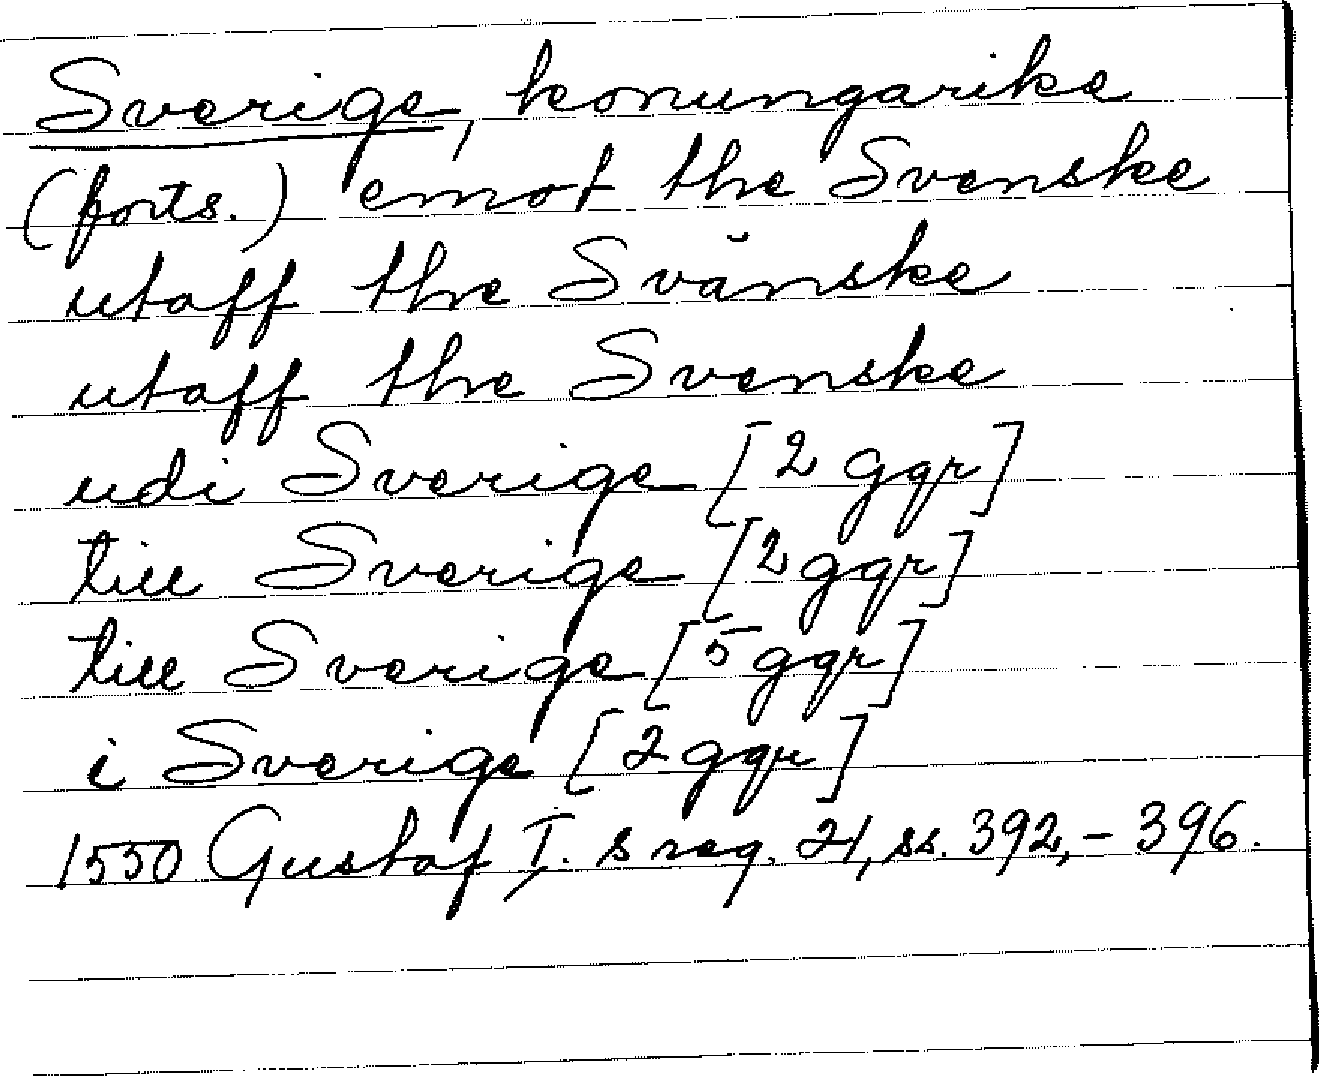 Sverige, konungarike
(forts.) emot the Svenske
utaff the Svänske
utaff the Svenske
udi Sverige [2 ggr]
till Sverige [2 ggr]
till Sverige [5 ggr]
i Sverige [2 ggr]
1550 Gustaf I. s reg. 21, ss. 392,-396.